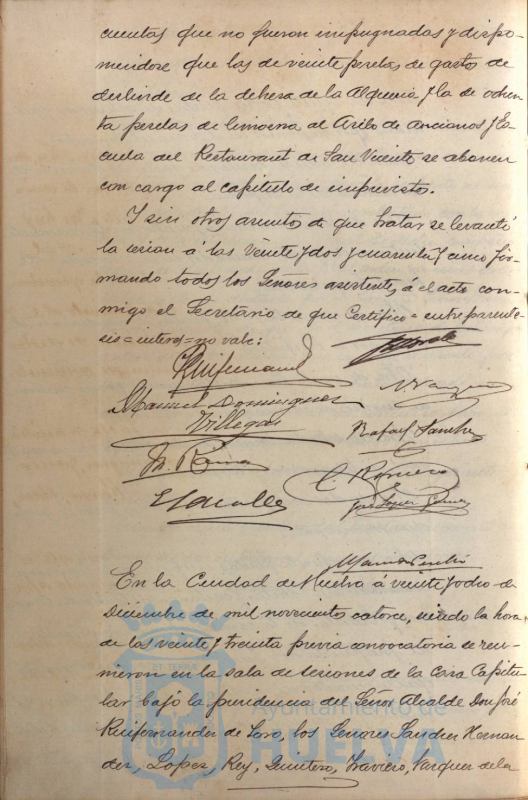 cuentas que no fueron impugnadas y dispo-
niendose que las de veinte pesetas de gastos de
deslinde de la dehesa de la Alqueria y la de ochen-
ta pesetas de limosna al Asilo de ancianos y Es-
cuela del Restaurant de San Vicente se abonen
con cargo al capitulo de imprevistos.
Y sin otros asuntos de que tratar se levantó
la sesion á las veinte y dos y cuarenta y cinco fir-
mando todos los Señores asistentes á el acto con-
migo el Secretario de que Certifico = entre parente-
sis = interos = no vale:
Manuel Dominguez
Villegas
Rafael Sanchez
C. Romero
José Lopez
En la Ciudad de Huelva á veinte y ocho de
Diciembre de mil novecientos catorce, siendo la hora
de las veinte y treinta previa convocatoria se reu-
nieron en la sala de sesiones de la Casa Capitu-
lar bajo la presidencia del Señor Alcalde Don José
Ruifernandez de Soro, los Señores Sanchez Hernan-
dez, Lopez, Rey, Quintero, Traviero, Vazquez de la
Ayuntamiento de
HUELVA